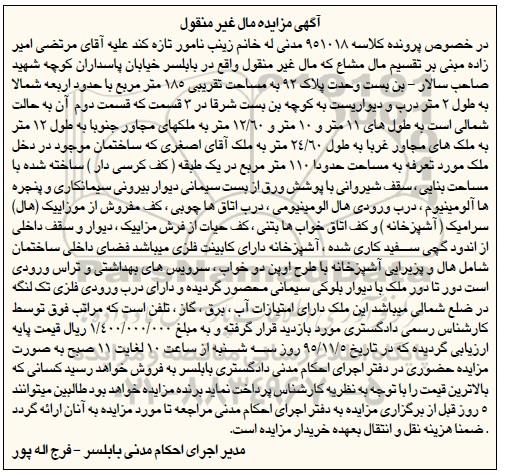 آگهی مزایده مال غیر منقول
در خصوص پرونده کلاسه ۹۵۱۰۱۸ مدنی له خانم زینب نامور تازه کند علیه آقای مرتضی امیر
زاده مبنی بر تقسیم مال مشاع که مال غیر منقول واقع در بابلسر خیابان پاسداران کوچه شهید
صاحب سالار - بن بست وحدت پلاک ۹۲ به مساحت تقریبی ۱۸۵ متر مربع با حدود اربعه شمالا
به طول ۲ متر درب و دیواریست به کوچه بن بست شرقا در ۳ قسمت که قسمت دوم آن به حالت
شمالی است به طول های ۱۱ متر و ۱۰ متر و ۱۲/۶۰ متر به ملکهای مجاور جنوبا به طول ۱۲ متر
به ملک های مجاور غربا به طول ۲۴/۶۰ متر به ملک آقای اصغری که ساختمان موجود در دخل
ملک مورد تعرفه به مساحت حدودا ۱۱۰ متر مربع در یک طبقه ( کف کرسی دار ) ساخته شده با
مساحت بنایی ، سقف شیروانی با پوشش ورق از بست سیمانی دیوار بیرونی سیمانکاری و پنجره
ها آلومینیوم ، درب ورودی هال الومینیومی ، درب اتاق ها چوبی ، کف مفروش از موزاییک (هال)
سرامیک ( آشپزخانه ) و کف اتاق خواب ها بتنی ، کف حیات از فرش مزاییک ، دیوار و سقف داخلی
از اندود گچی سفید کاری شده ، آشپزخانه دارای کابینت فلزی میباشد فضای داخلی ساختمان
شامل هال و پزیرایی آشپزخانه با طرح اوپن دو خواب ، سرویس های بهداشتی و تراس ورودی
است دور تا دور ملک با دیوار بلوکی سیمانی محصور گردیده و دارای درب ورودی فلزی تک لنگه
در ضلع شمالی میباشد این ملک دارای امتیازات آب ، برق ، گاز ، تلفن است که مراتب فوق توسط
کارشناس رسمی دادگستری مورد بازدید قرار گرفته و به مبلغ ۱/۴۰۰/۰۰۰/۰۰۰ ریال قیمت پایه
ارزیابی گردیده که در تاریخ ۹۵/۱۱/۵ روز سه شنبه از ساعت ۱۰ لغایت ۱۱ صبح به صورت
مزایده حضوری در دفتر اجرای احکام مدنی دادگستری بابلسر به فروش خواهد رسید کسانی که
بالاترین قیمت را با توجه به نظریه کارشناس پرداخت نماید برنده مزایده خواهد بود طالبین میتوانند
۵ روز قبل از برگزاری مزایده به دفتر اجرای احکام مدنی مراجعه تا مورد مزایده به آنان ارائه گردد
. ضمنا هزینه نقل و انتقال بعهده خریدار مزایده است .
مدیر اجرای احکام مدنی بابلسر - فرج اله پور